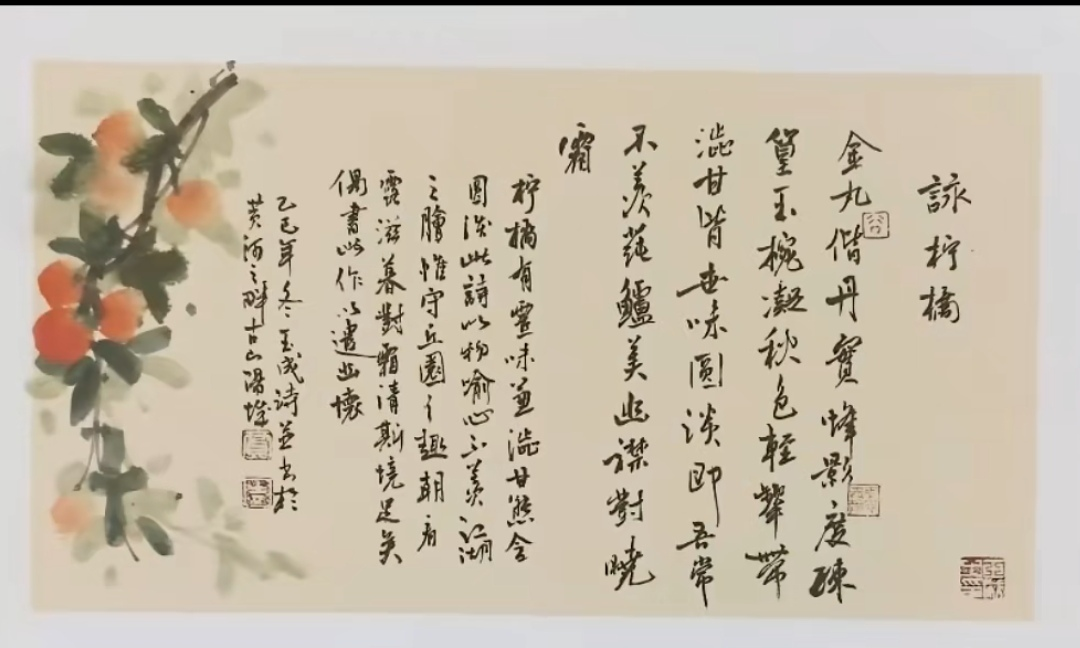 詠柠橘
金丸偕丹實蜂影度疎
篁玉椀凝秋色輕顰帶
澁甘皆世味圓淡即吾常
不羡蒓鱸美幽襟對曉
霜
柠橘有靈味兼澁甘態含
圓淡此詩以物喻心不羡江湖
之膾惟守丘園之趣朝看
露滋暮對霜清斯境足矣
偶書此作以遣幽懷
乙巳年冬玉成诗並书於
黄河之畔古山湯